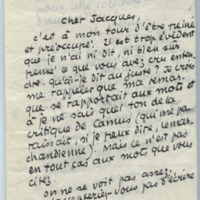 cher Jacques,
c'est à mon tour d'être peiné
et préoccupé. Il est trop évident
que je n'ai ni dit, ni bien sûr
pensé ce que vous avez cru enten-
dre. qu'ai-je dit au juste? Je crois
me rappeler que ma remar-
que se rapportait aux mots et
à je ne sais quel ton de la
critique de Camus (qui me pa-
raissait, si je peux dire,
chandienne). Mais ce n'est pas
en tout cas aux mots que vous
citez.
on ne se voit pas assez.
-vous pas d'écrire